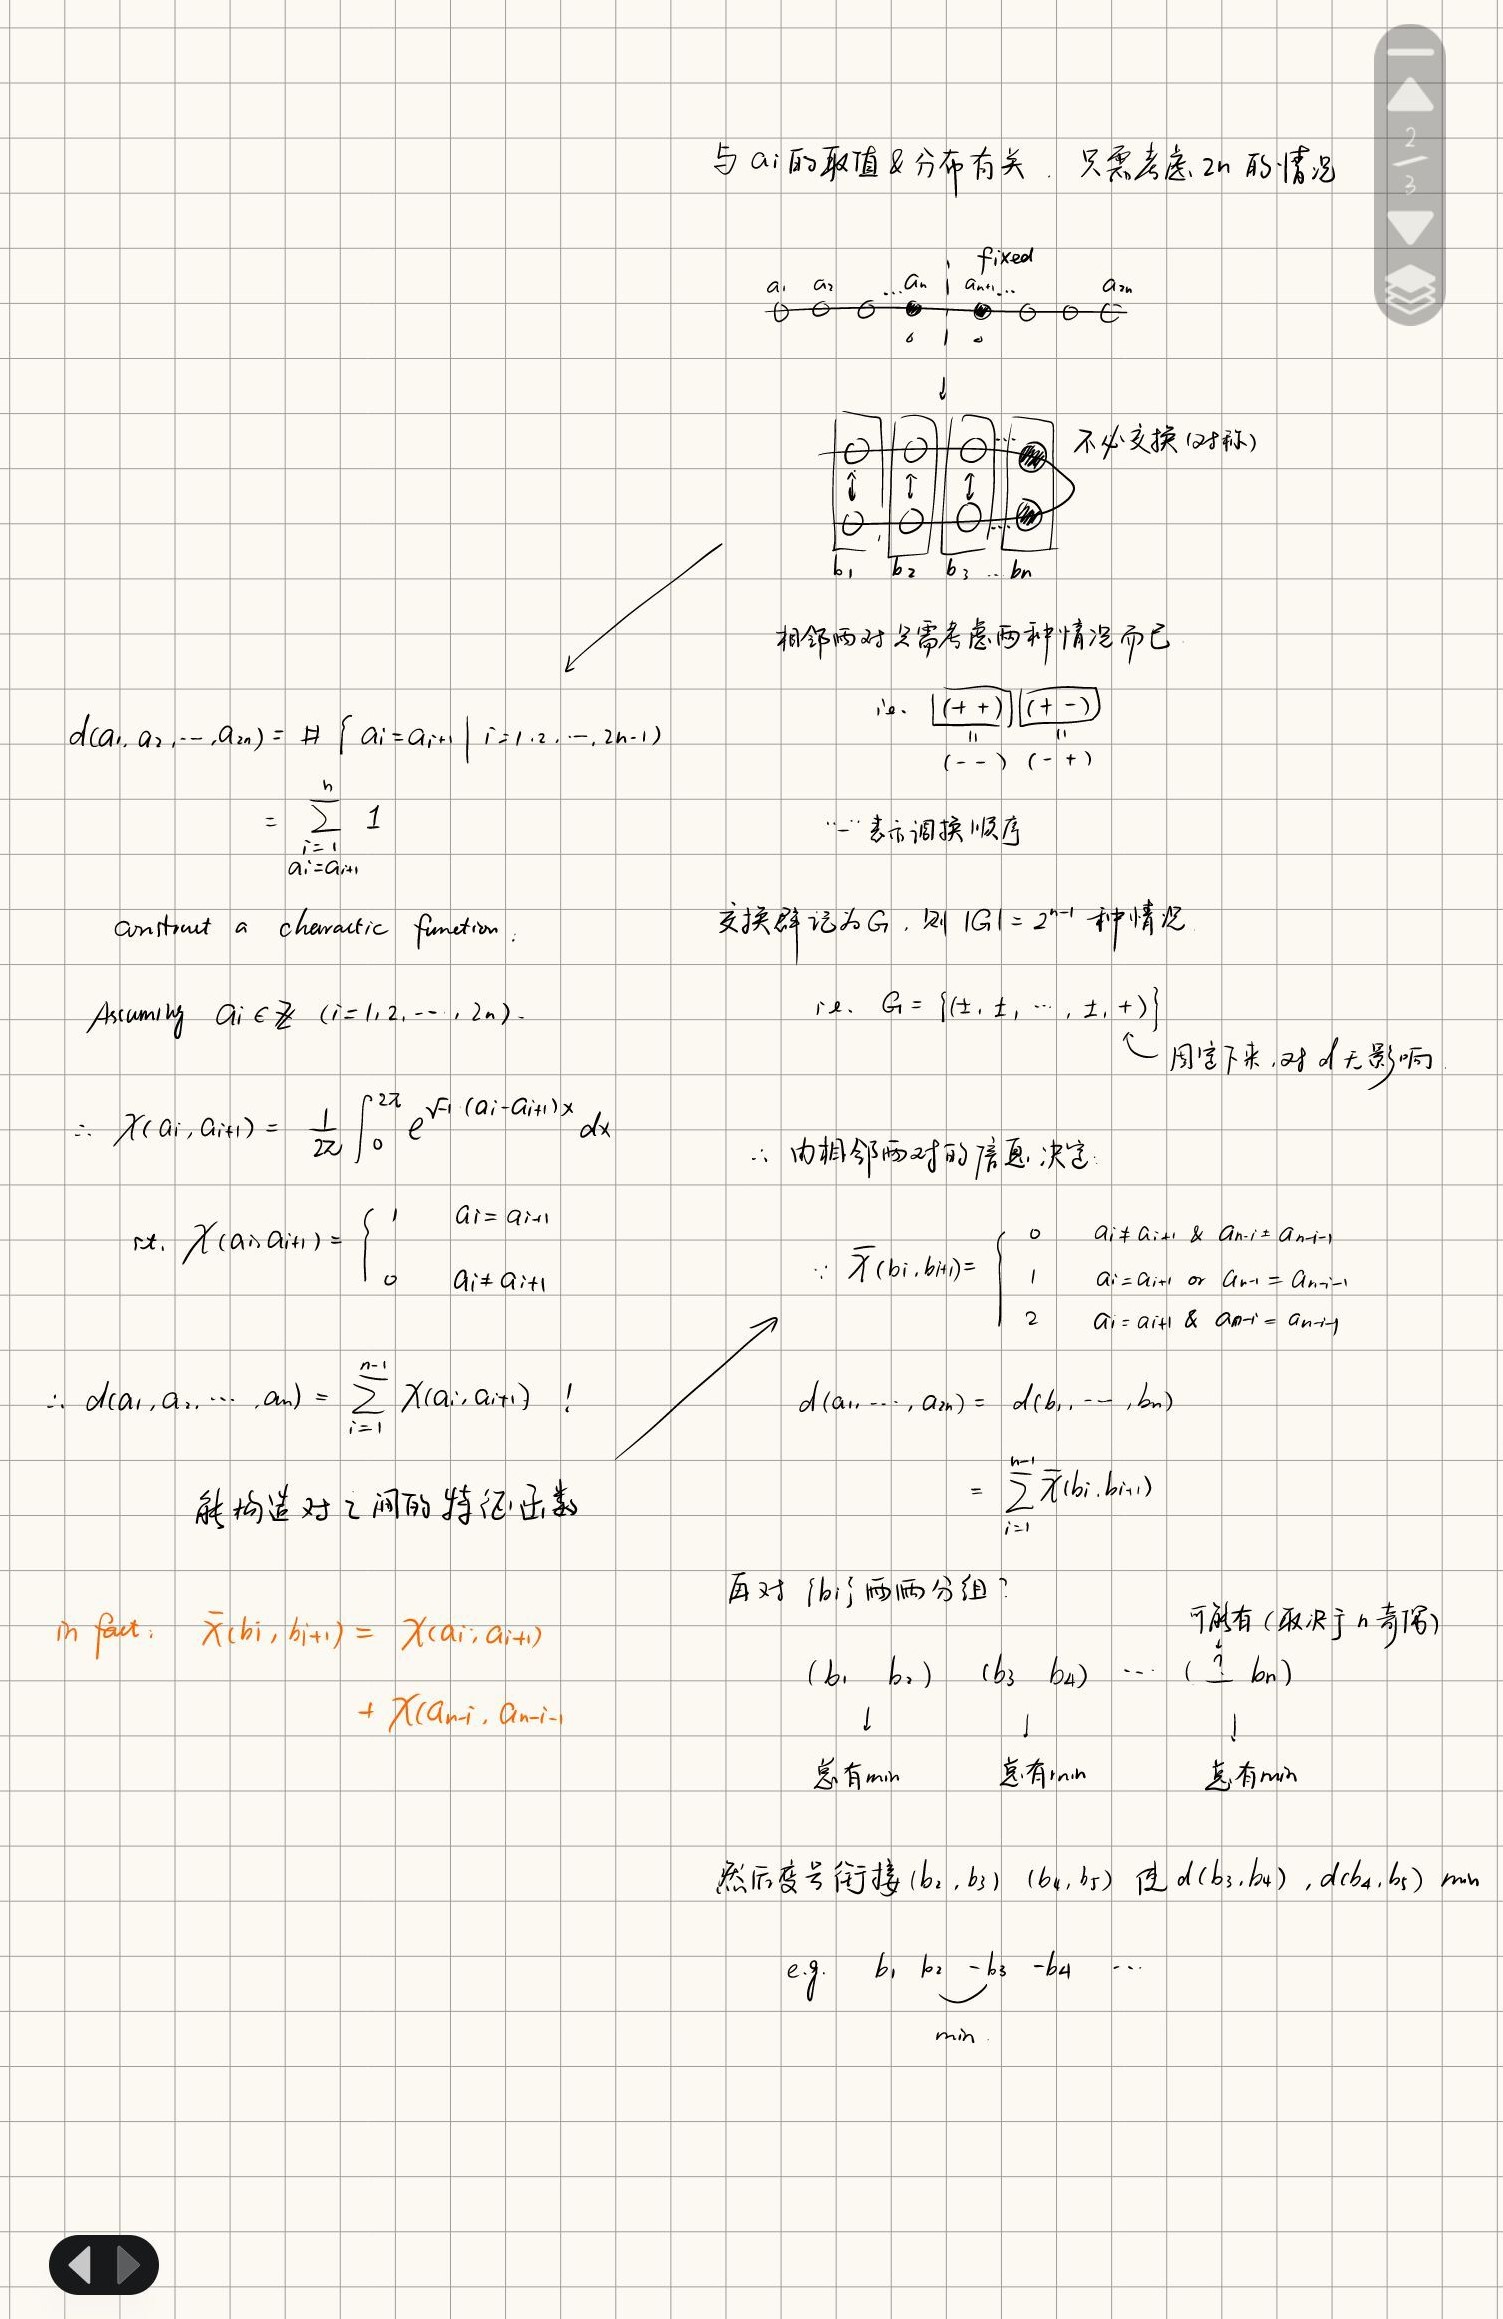 与 ai 的取值 & 分布有关. 只需考虑 2n 的情况
2
3
fixed
a1 a2 ...an an+1... a2n
0 0
不必交换(对称)
b1 b2 b3 ... bn
相邻两对只需考虑两种情况而已
i.e. (+ +) (+ -)
(- -) (- +)
"-" 表示调换顺序
交换群记为G, 则 |G| = 2^{n-1} 种情况
i.e. G = {(±, ±, ..., ±, +)}
固定下来,对 d 无影响
∴ 由相邻两对的信息决定:
d(a1, a2, ..., a2n) = # { ai = ai+1 | i=1,2,...,2n-1)
= \sum_{i=1, ai=ai+1}^{n} 1
construct a charactic function:
Assuming ai ∈ Z (i=1,2,...,2n).
∴ χ(ai, ai+1) = \frac{1}{2π} \int_0^{2π} e^{\sqrt{-1}·(ai-ai+1)x} dx
s.t. χ(ai, ai+1) = { 1 ai = ai+1
0 ai ≠ ai+1
∴ d(a1, a2, ..., an) = \sum_{i=1}^{n-1} χ(ai, ai+1) !
能构造对之间的特征函数
in fact: \bar{χ}(bi, bi+1) = χ(ai, ai+1)
+ χ(an-i, an-i-1
∵ \bar{χ}(bi, bi+1) = { 0 ai ≠ ai+1 & an-i ≠ an-i-1
1 ai = ai+1 or an-i = an-i-1
2 ai = ai+1 & an-i = an-i-1
d(a1, ..., a2n) = d(b1, ..., bn)
= \sum_{i=1}^{n-1} \bar{χ}(bi, bi+1)
再对 {bi} 两两分组?
可能有(取决于 n 奇偶)
(b1 b2) (b3 b4) ... (? bn)
总有min 总有min 总有min
然后变号衔接 (b2, b3) (b4, b5) 使 d(b3, b4), d(b4, b5) min
e.g. b1 b2 -b3 -b4 ...
min.